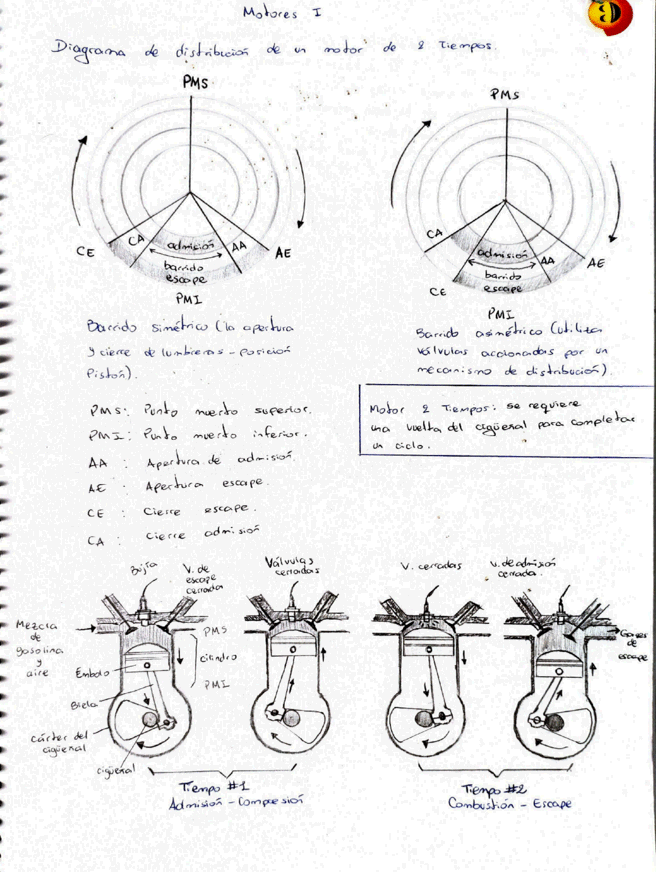 Motores I
Diagrama de distribución de un motor de 2 Tiempos.
PMS
CE
CA
admisión
AA
AE
barrido
escape
PMI
Barrido simétrico (la apertura
y cierre de lumbreras - posición
Pistón).
PMS
CA
admisión
AA
AE
barrido
CE
escape
PMI
Barrido asimétrico (utiliza
válvulas accionadas por un
mecanismo de distribución).
PMS: Punto muerto superior.
PMI: Punto muerto inferior.
AA : Apertura de admisión.
AE : Apertura escape.
CE : Cierre escape.
CA : Cierre admisión
Motor 2 Tiempos: se requiere
una vuelta del cigüeñal para completar
un ciclo.
Bujía
V. de
escape
cerrada
Válvulas
cerradas
V. cerradas
v. de admisión
cerrada.
Mezcla
de
gasolina
y
aire
PMS
cilindro
PMI
Émbolo
Biela
Cárter del
cigüeñal
cigüeñal
Gases
de
escape
Tiempo #1
Admisión - Compresión
Tiempo #2
Combustión - Escape